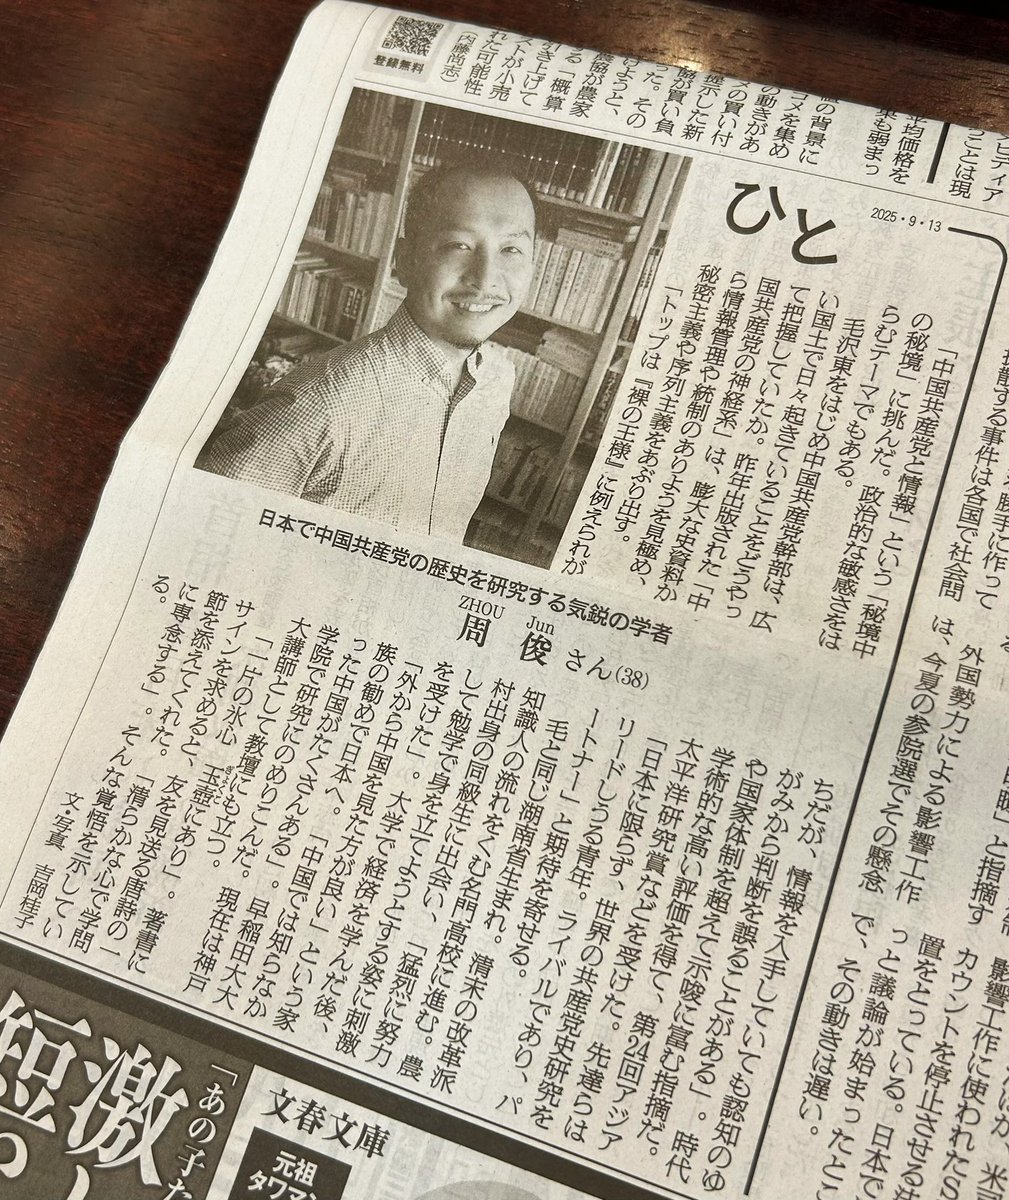 ひと
2025・9・13
「中国共産党と情報」という「秘境中
の秘境」に挑んだ。政治的な敏感さをは
らむテーマでもある。
毛沢東をはじめ中国共産党幹部は、広
い国土で日々起きていることをどうやっ
て把握していたか。昨年出版された「中
国共産党の神経系」は、膨大な史資料か
ら情報管理や統制のありようを見極め、
秘密主義や序列主義をあぶり出す。
「トップは『裸の王様』に例えられが
ちだが、情報を入手していても認知のゆ
がみから判断を誤ることがある」。時代
や国家体制を超えて示唆に富む指摘だ。
学術的な高い評価を得て、第24回アジア
太平洋研究賞などを受けた。先達らは
「日本に限らず、世界の共産党史研究を
リードしうる青年。ライバルであり、パ
ートナー」と期待を寄せる。
毛と同じ湖南省生まれ。清末の改革派
知識人の流れをくむ名門高校に進む。農
村出身の同級生に出会い、「猛烈に努力
して勉学で身を立てようとする姿に刺激
を受けた」。大学で経済を学んだ後、
「外から中国を見た方が良い」という家
族の勧めで日本へ。「中国では知らなか
った中国がたくさんある」。早稲田大大
学院で研究にのめりこんだ。現在は神戸
大講師として教壇にも立つ。
「一片の氷心 玉壺にあり」。著書に
ぎょくこ
サインを求めると、友を見送る唐詩の一
節を添えてくれた。「清らかな心で学問
に専念する」。そんな覚悟を示してい
る。
文・写真 吉岡桂子
日本で中国共産党の歴史を研究する気鋭の学者
ZHOU Jun
周 俊さん(38)
登録無料
内藤尚志
た可能性
ストが小売
き上げて
る「概算
農協が農家
けようと、
た。その
協が買い負
提示した新
の買い付
の動きがあ
コメを集め
の背景に
平均価格を
果も弱まっ
ビティア
ことは現
勝手に作って
拡散する事件は各国で社会問
と指摘す
外国勢力による影響工作
は、今夏の参院選でその懸念
影響工作に使われたS
カウントを停止させる
置をとっている。日本で
っと議論が始まったとこ
で、その動きは遅い。
「あの子た
激
短
文春文庫
元祖
タワマン